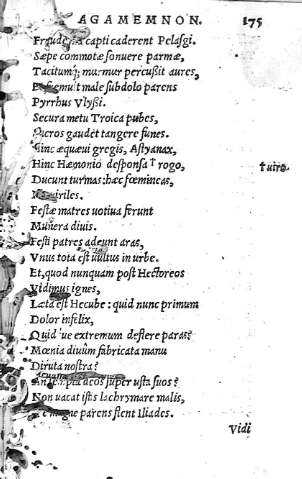 AGAMEMNON. 175
Fraude sua capti caderent Pelasgi.
Sæpe commotæ sonuere parmæ,
Tacitumq; murmur percußit aures,
fremuit male subdolo parens
Pyrrhus Vlyßi.
Secura metu Troica pubes,
Sacros gaudet tangere funes.
Hinc æquæui gregis, Astyanax,
Hinc Hæmonio desponsa † rogo, † uiro
Ducunt turmas: hæc fœmineas,
uiriles.
Festæ matres uotiua ferunt
Munera diuis.
Festi patres adeunt aras,
Vnus tota est uultus in urbe.
Et, quod nunquam post Hectoreos
Vidimus ignes,
Læta est Hecube: quid nunc primum
Dolor infelix,
Quid ue extremum deflere paras?
Mœnia diuûm fabricata manu
Diruta nostra?
An templa deos super usta suos?
Non uacat istis lachrymare malis,
magne parens flent Iliades.
Vidi